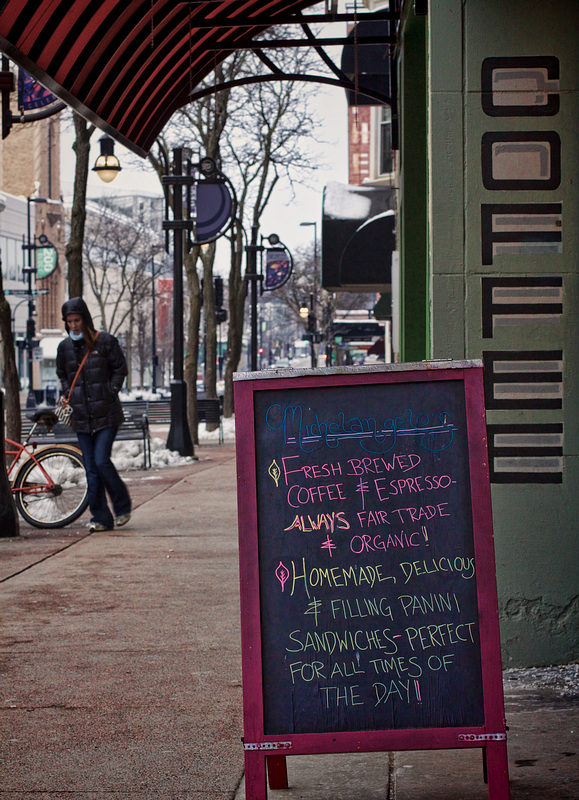 COFFEE
Michelangelo's
FRESH BREWED
COFFEE & ESPRESSO-
ALWAYS FAIR TRADE
& ORGANIC!
HOMEMADE, DELICIOUS
& FILLING PANINI
SANDWICHES- PERFECT
FOR ALL TIMES OF
THE DAY!!